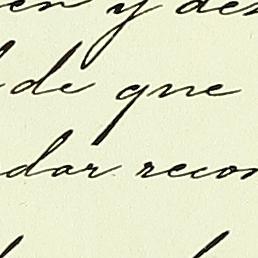 en y des
de que
dar recon